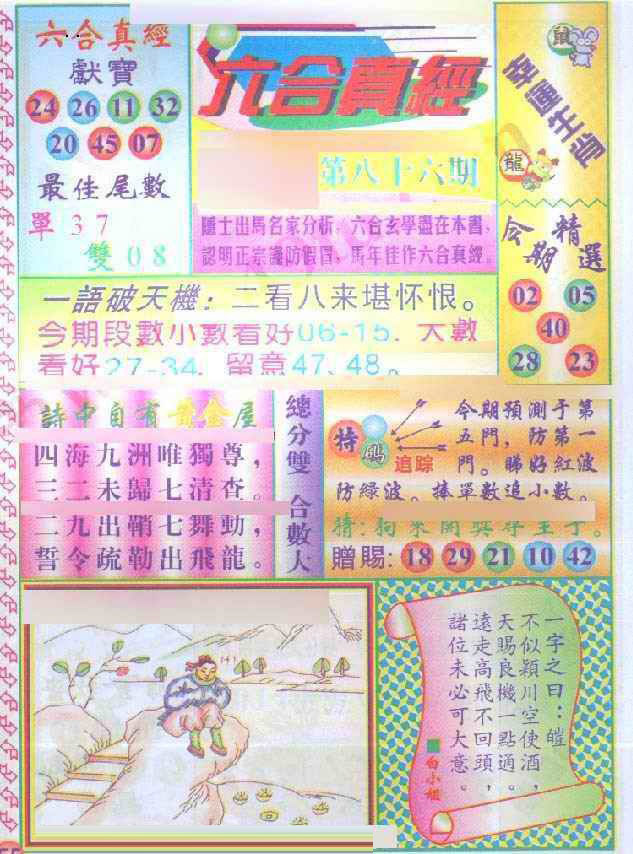 六合真經
獻寶
24 26 11 32
20 45 07
最佳尾數
單 3 7
雙 0 8
六合真經
第八十六期
隱士出馬名家分析，六合玄學盡在本書，
認明正宗謹防假冒，馬年佳作六合真經。
鼠
幸運生肖
龍
今期精選
02 05
40
28 23
一語破天機：二看八来堪怀恨。
今期段數小數看好06-15. 大數
看好27-34. 留意47、48。
詩中自有黄金屋
四海九洲唯獨尊，
三二未歸七清查。
二九出鞘七舞動，
誓令疏勒出飛龍。
總分雙 合數大
特碼
追踪
今期預測于第
五門，防第一
門。睇好紅波
防綠波。捧單數追小數。
贈賜: 18 29 21 10 42
一字之曰：皚
不似穎川空使酒，
天賜良機一點通。
遠走高飛不回頭，
諸位未必可大意。
白小姐